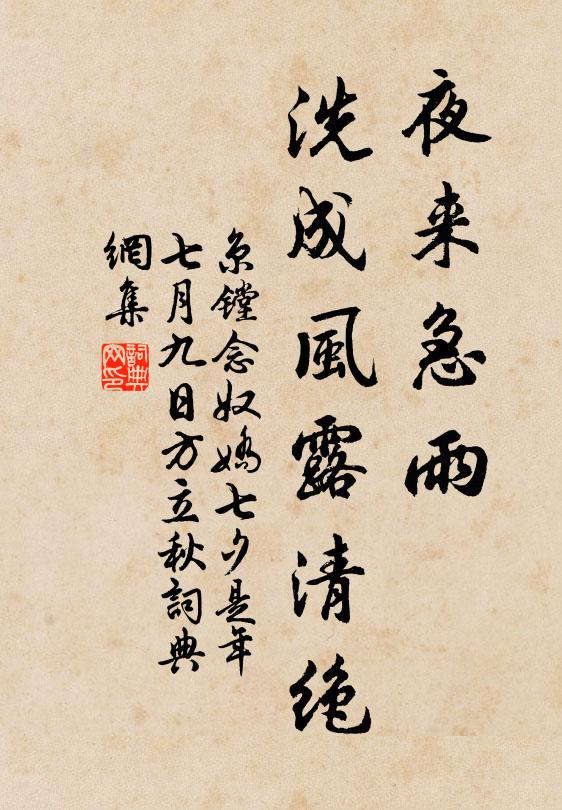 夜来急雨
洗成風露清绝
京鏜念奴嬌七夕是年
七月九日方立秋詞典
網集
詞典网印